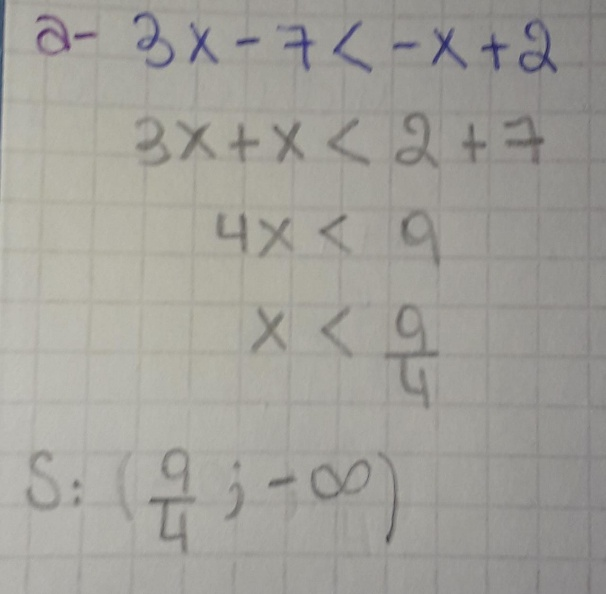 a- 3x - 7 < -x + 2
3x + x < 2 + 7
4x < 9
x < 9/4
S: (9/4 ; -∞)